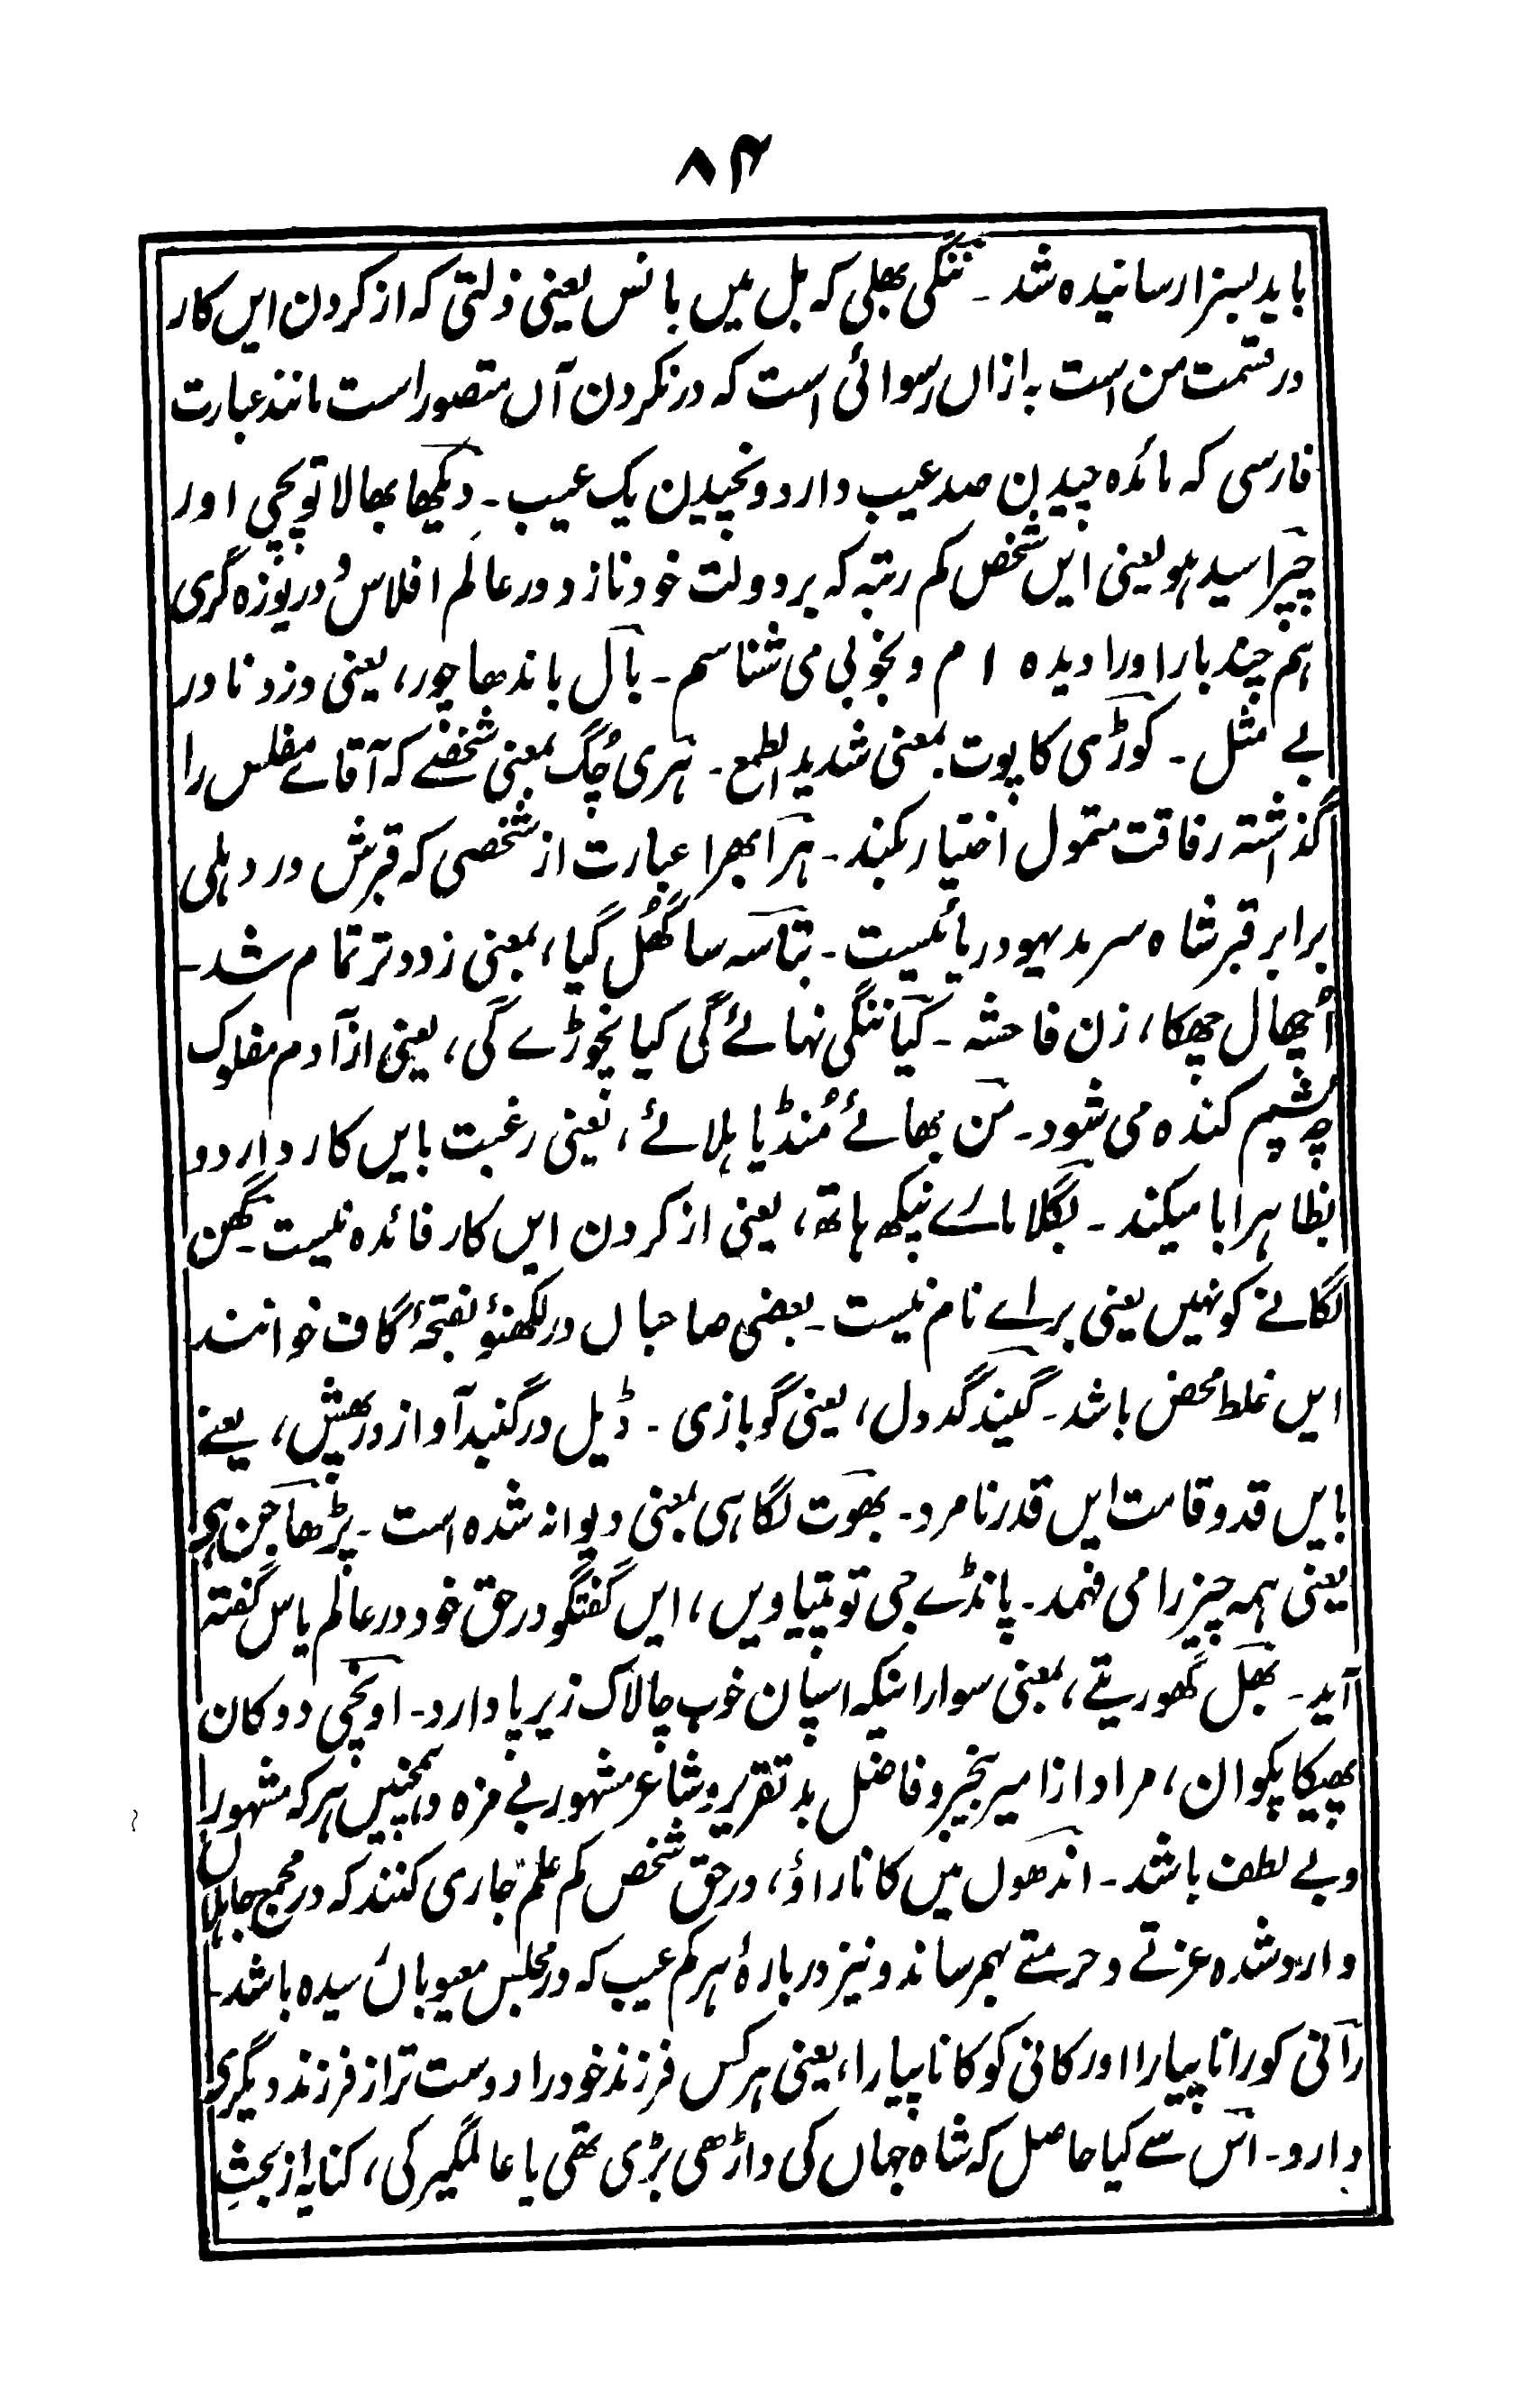 ۸۴
باید بسزا رسانیده شد۔ ننگی بھلی کہ بل میں بانس یعنی ذلتی کہ از کردن ایں کار
در قسمت من است بہ ازاں رسوائی است کہ در نکردن آں متصور است مانند عبارت
فارسی کہ مائدہ چیدن صد عیب دارد و نچیدن یک عیب۔ دیکھا بھالا توپچی اور
چپرا سید ہو یعنی ایں شخص کم رتبہ کہ بر دولت خود نازد در عالم افلاس و دریوزہ گری
ہم چند بار اورا دیدہ ام و بخوبی می شناسم۔ بال باندھا چور، یعنی دزد نادر
بے مثل۔ کوڑی کا پوت بمعنی شدید الطمع۔ ہری چگ بمعنی شخصے کہ آقاے مفلس را
گذاشتہ رفاقت متمول اختیار بکند۔ ہرا بھرا عبارت از شخصی کہ قبرش در دہلی
برابر قبر شاہ سرمد یہود ریائیست۔ بتاسہ سا گھُل گیا، بمعنی زود تر تمام شد۔
اُچھال چھکا، زن فاحشہ۔ کیا ننگی نہائے گی کیا نچوڑے گی، یعنی از آدم مفلوک
چہ پشم کندہ می شود۔ من بھائے مُنڈیا ہلائے، یعنی رغبت بایں کار دارد و
بظاہر ابا میکند۔ بگلا مارے پنکھ ہاتھ، یعنی از کردن ایں کار فائدہ نیست۔ گھن
لگانے کو نہیں یعنی براے نام نیست۔ بعضی صاحباں در لکھنؤ بفتحۂ گاف خوانند
ایں غلط محض باشد۔ گیند گد دل، یعنی گو بازی۔ ڈیل در گنبد آواز در پھش، یعنے
بایں قد و قامت ایں قدر نامرد۔ بھوت لگا ہی بمعنی دیوانہ شدہ است۔ پڑھا جن ہی
یعنی ہمہ چیز را می فہمد۔ پانڈے جی تو پتیاویں، ایں گفتگو در حق خود در عالم یاس گفتہ
آید۔ بھل گھوریتے، بمعنی سوار اینکہ اسپان خوب چالاک زیر پا دارد۔ اونچی دوکان
پھیکا پکوان، مراد از امیر بخیر و فاضل بد تقریر و شاعر مشہور بے مزہ و ہمچنیں ہر کہ مشہور را
و بے لطف باشد۔ اندھوں میں کانا راؤ، در حق شخص کم علم جاری کنند کہ در مجمع جاہلاں
وارد شدہ عزتے و حرمتے بہم رساند و نیز دربارۂ ہر کم عیب کہ در مجلس معیوباں رسیدہ باشد۔
رانی کو رانا پیارا اور کانی کو کانا پیارا، یعنی ہر کس فرزند خود را دوست تر از فرزند دیگری
دارد۔ اس سے کیا حاصل کہ شاہ جہاں کی داڑھی بڑی تھی یا عالمگیر کی، کنایہ از بحثِ